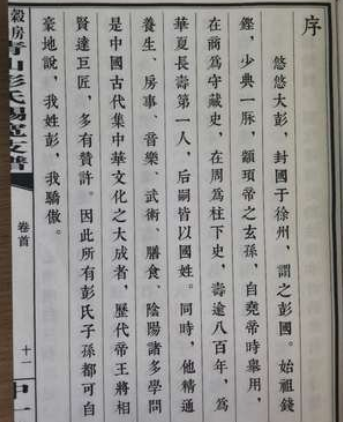 序
悠悠大彭，封國于徐州，謂之彭國。始祖錢
鏗，少典一脉，顓頊帝之玄孫，自堯帝時舉用，
在商爲守藏史，在周爲柱下史，壽逾八百年，爲
華夏長壽第一人，后嗣皆以國姓。同時，他精通
養生、房事、音樂、武術、膳食、陰陽諸多學問
是中國古代集中華文化之大成者，歷代帝王將相
賢達巨匠，多有贊許。因此所有彭氏子孫都可自
豪地說，我姓彭，我驕傲。
穀房青山彭氏錫寬支譜
卷首
十一